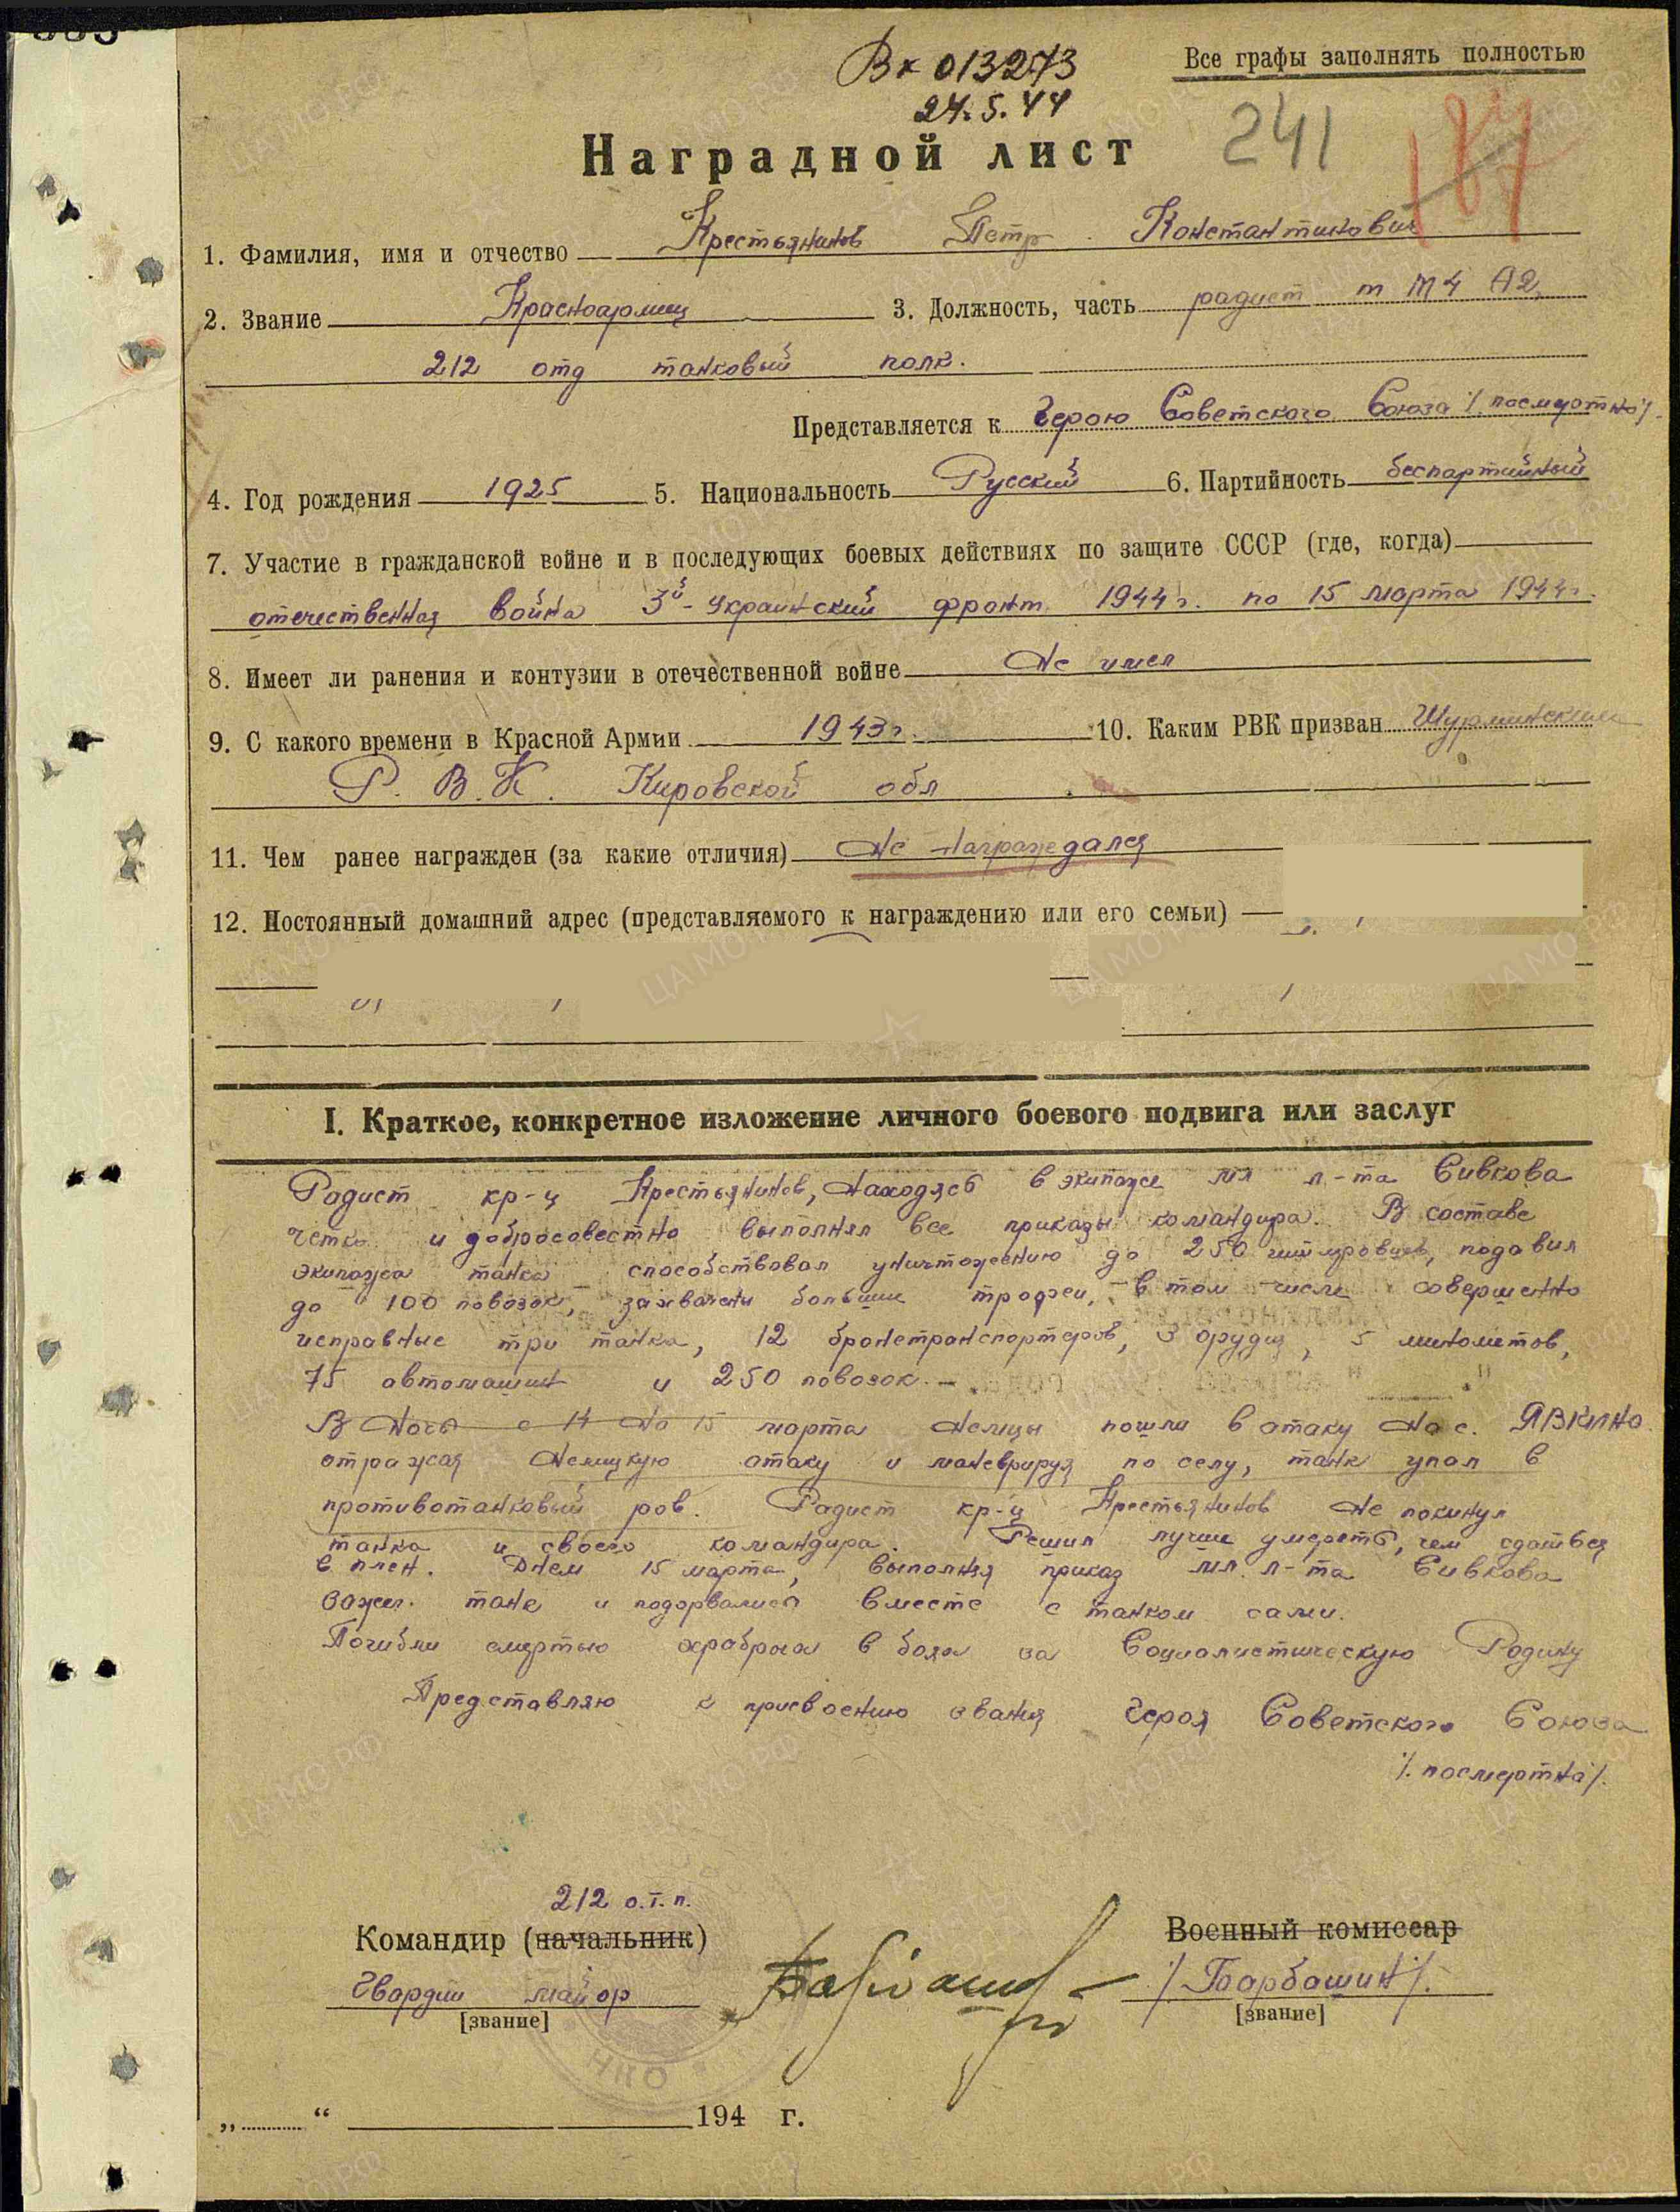 Вх 013273
24.5.44
Все графы заполнять полностью
241
Наградной лист
1. Фамилия, имя и отчество Крестьянинов Петр Константинович
2. Звание Красноармеец 3. Должность, часть радист т М4 А2,
212 отд танковый полк.
Представляется к Герою Советского Союза /. посмертно/.
4. Год рождения 1925 5. Национальность Русский 6. Партийность беспартийный
7. Участие в гражданской войне и в последующих боевых действиях по защите СССР (где, когда)
отечественная война 3й-Украинский фронт 1944г. по 15 марта 1944г.
8. Имеет ли ранения и контузии в отечественной войне Не имел
9. С какого времени в Красной Армии 1943г. 10. Каким РВК призван Шурминским
Р. В. К. Кировской обл
11. Чем ранее награжден (за какие отличия) Не награждался
12. Постоянный домашний адрес (представляемого к награждению или его семьи)
I. Краткое, конкретное изложение личного боевого подвига или заслуг
Радист кр-ц Крестьянинов, находясь в экипаже мл л-та Сивкова
четко и добросовестно выполнял все приказы командира. В составе
экипажа танка способствовал уничтожению до 250 гитлеровцев, подавил
до 100 повозок, захвачены большие трофеи, в том числе совершенно
исправные три танка, 12 бронетранспортеров, 3 орудия, 5 минометов,
75 автомашин и 250 повозок.
В ночь с 14 на 15 марта немцы пошли в атаку на с. ЯВКИНО
отражая немецкую атаку и маневрируя по селу, танк упал в
противотанковый ров. Радист кр-ц Крестьянинов не покинул
танка и своего командира. Решил лучше умереть, чем сдаться
в плен. Днем 15 марта, выполняя приказ мл. л-та Сивкова
зажег танк и подорвались вместе с танком сами.
Погибли смертью храбрых в боях за Социалистическую Родину
Представляю к присвоению звания Героя Советского Союза
/. посмертно/.
212 о.т.п.
Командир (начальник) Военный комиссар
Гвардии майор /. Барбашин/.
[звание] [звание]
НКО
„ “ 194 г.